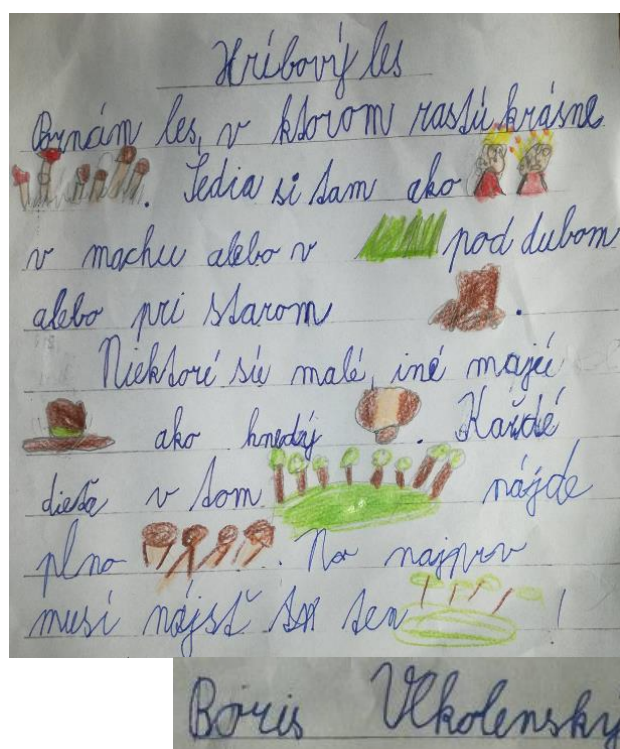 Hríbový les
Poznám les, v ktorom rastú krásne
. Sedia si tam ako
v machu alebo v pod dubom
alebo pri starom .
Niektoré sú malé, iné majú
ako hnedý . Každé
dieťa v tom nájde
plno . No najprv
musí nájsť ten !
Boris Vlkolenský